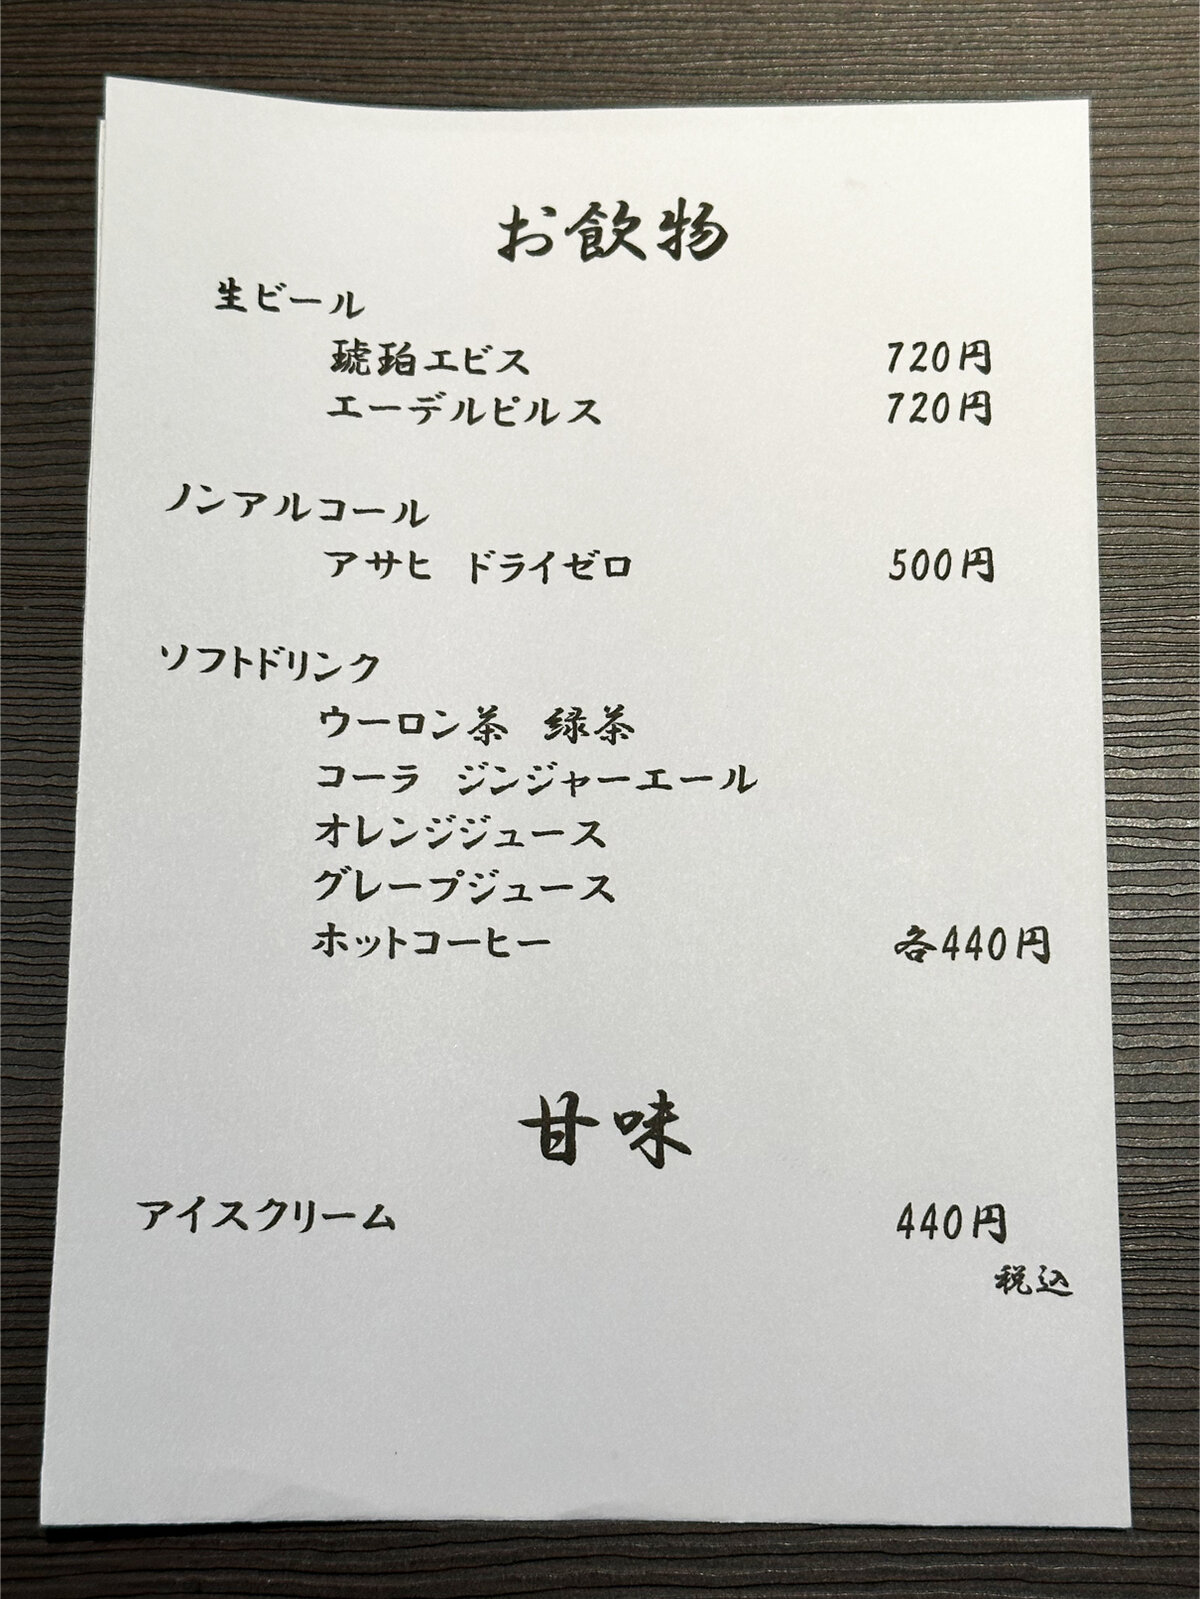 お飲物
生ビール
琥珀エビス 720円
エーデルピルス 720円
ノンアルコール
アサヒ ドライゼロ 500円
ソフトドリンク
ウーロン茶 緑茶
コーラ ジンジャーエール
オレンジジュース
グレープジュース
ホットコーヒー 各440円
甘味
アイスクリーム 440円
税込